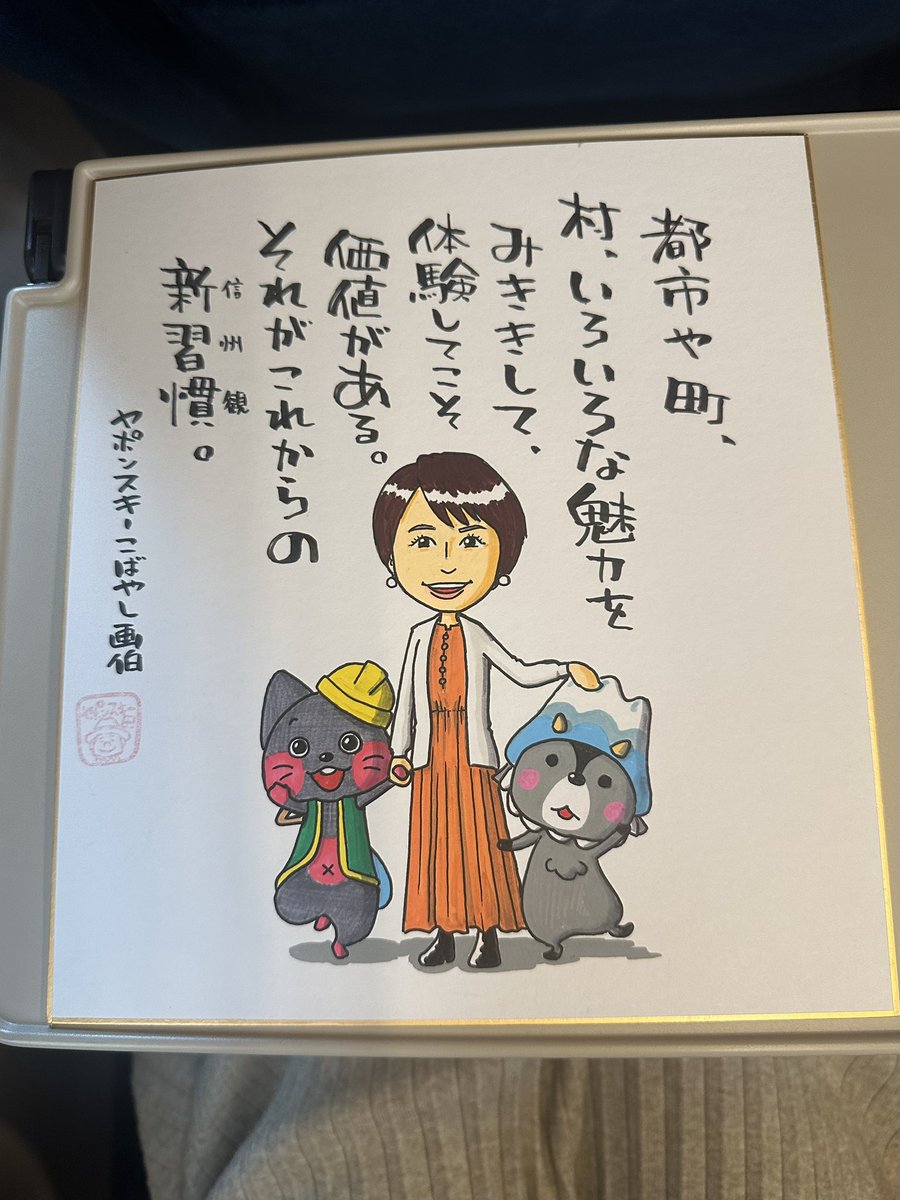 都市や町、
村、いろいろな魅力を
みききして、
体験してこそ
価値がある。
それがこれからの
信州観
新習慣。
ヤポンスキーこばやし画伯